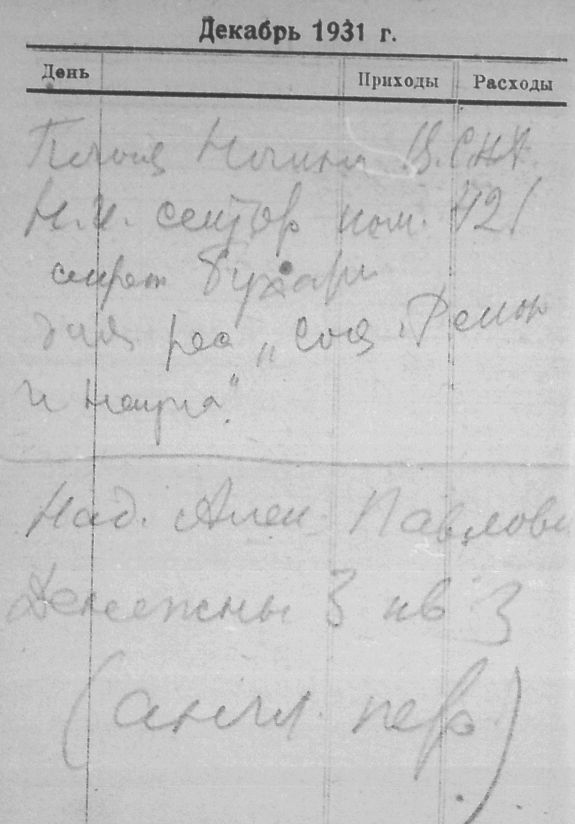 Декабрь 1931 г.
День Приходы Расходы
Площ Ногина В.С.Н.Х.
Н.И. сектор ком. 421
секрет Бухари
для ред „Соц. Рекон
и наука"
Над. Алек. Павлов
Денежны 3 кв 3
(англ. пер.)